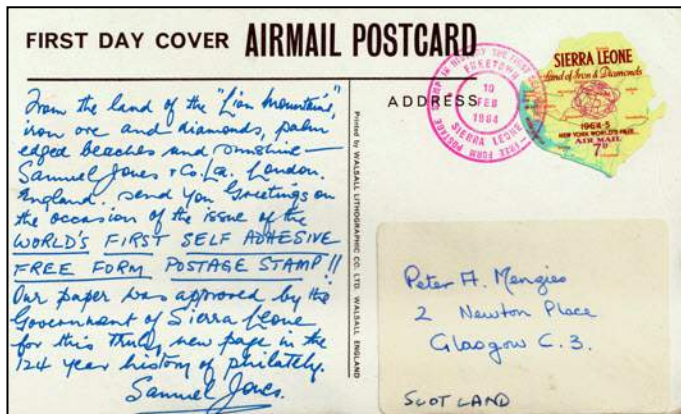 FIRST DAY COVER AIRMAIL POSTCARD
From the land of the "Lion Mountains",
iron ore and diamonds, palm
edged beaches and sunshine —
Samuel Jones & Co. Ltd. London.
England. send You Greetings on
the occasion of the issue of the
WORLD'S FIRST SELF ADHESIVE
FREE FORM POSTAGE STAMP!!
Our paper was approved by the
Government of Sierra Leone
for this truly new page in the
124 year history of philately.
Samuel Jones.
Printed by WALSALL LITHOGRAPHIC CO. LTD. WALSALL ENGLAND
ADDRESS
FREETOWN
10
FEB
1964
SIERRA LEONE
FREE FORM POSTAGE
SIERRA LEONE
Land of Iron & Diamonds
1964-5
NEW YORK WORLD'S FAIR
AIR MAIL
7D
Peter A. Menzies
2 Newton Place
Glasgow C.3.
SCOTLAND